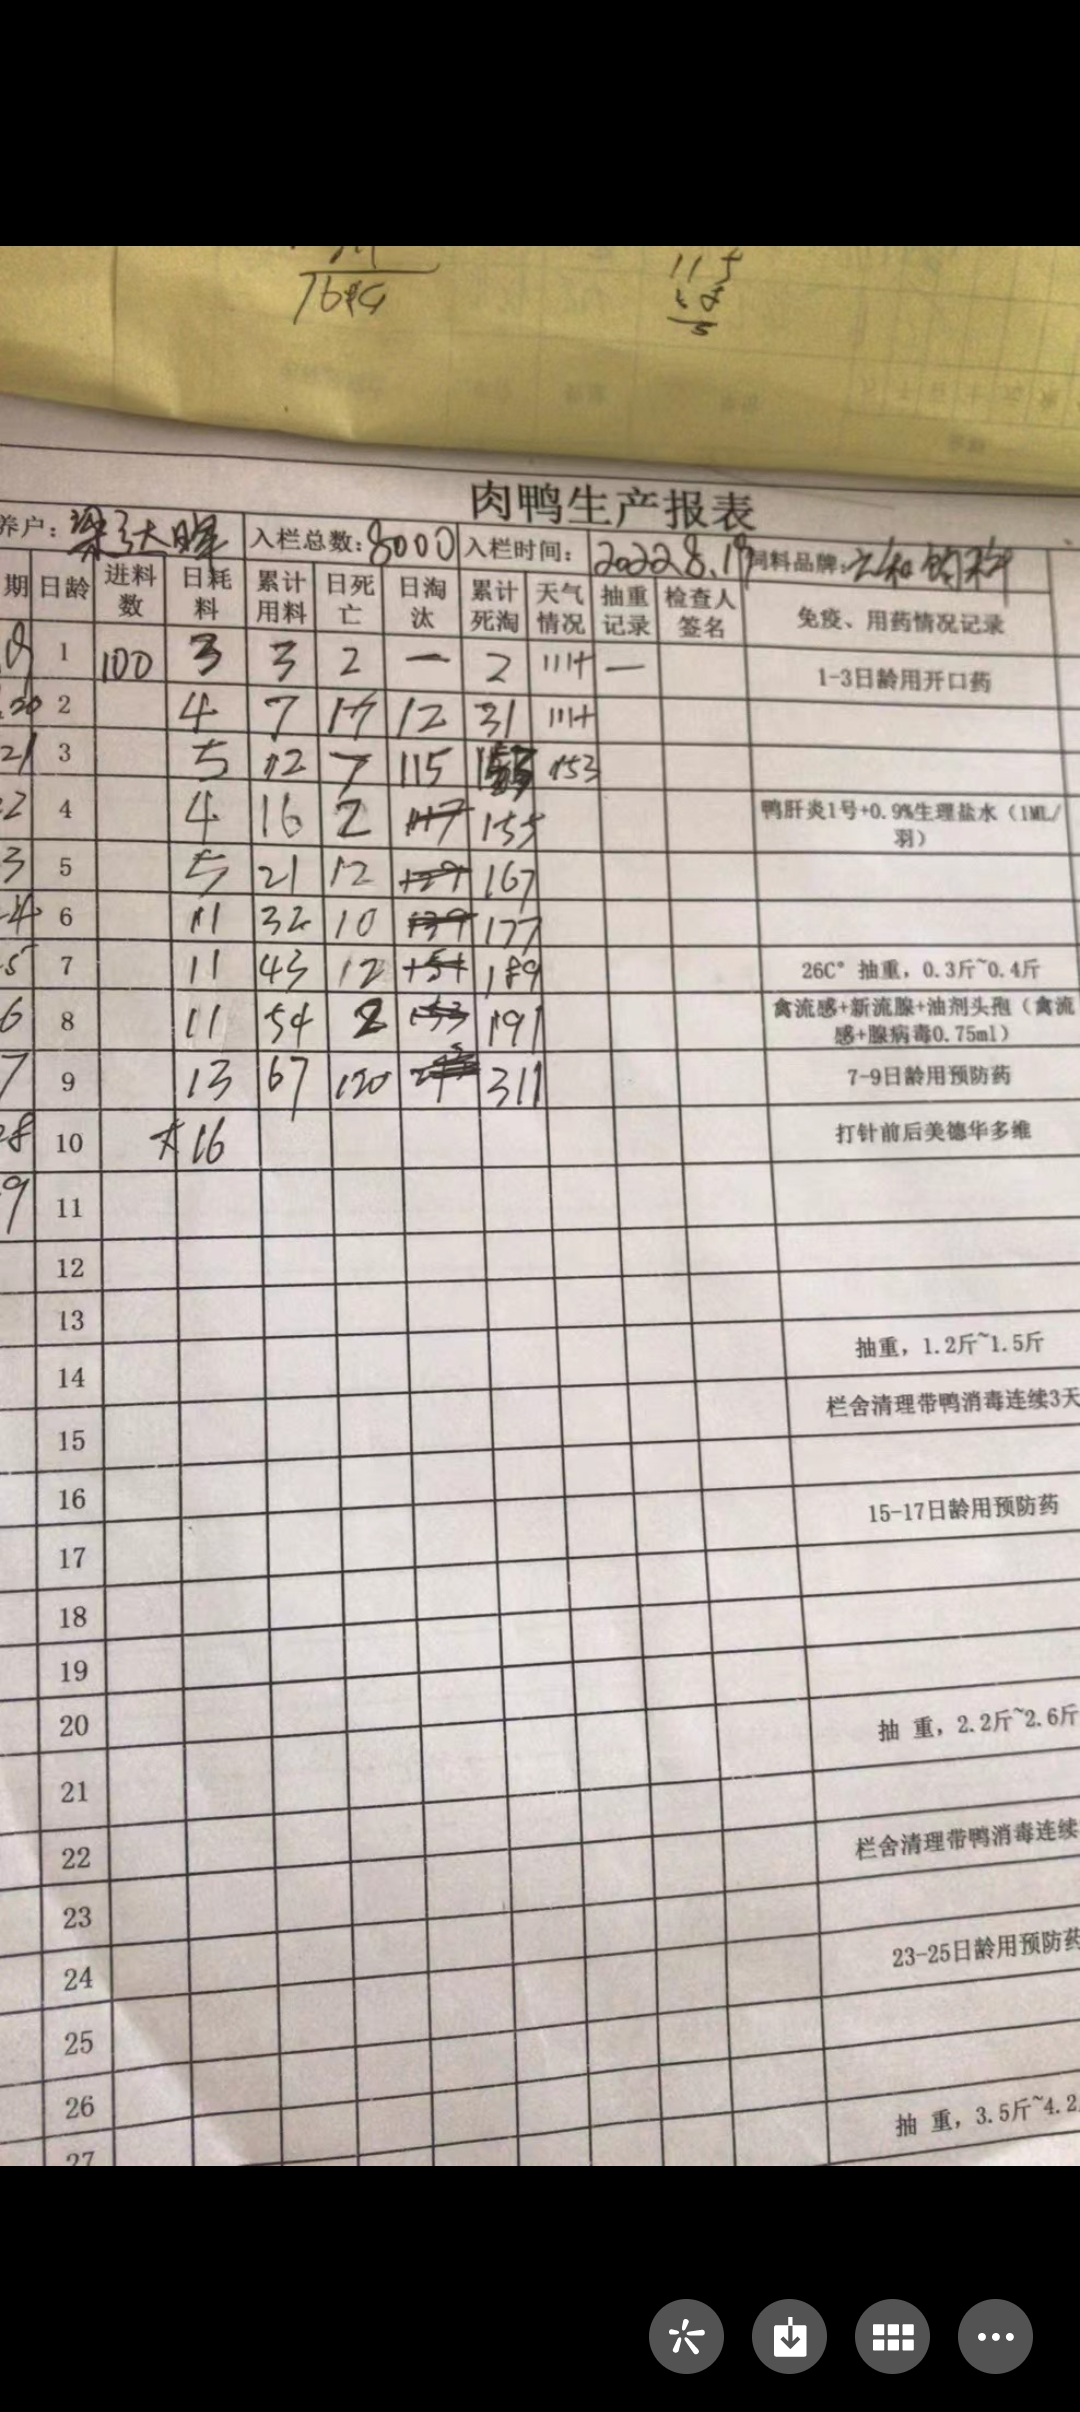 115
肉鸭生产报表
养户: 入栏总数: 8000 入栏时间: 2022.8.19 饲料品牌:
期 日龄 进料数 日耗料 累计用料 日死亡 日淘汰 累计死淘 天气情况 抽重记录 检查人签名 免疫、用药情况记录
1 100 3 3 2 一 2 一 1-3日龄用开口药
20 2 4 7 17 12 31
21 3 5 12 7 115 153
2 4 4 16 2 117 155 鸭肝炎1号+0.9%生理盐水（1ML/羽）
3 5 5 21 12 129 167
4 6 11 32 10 139 177
5 7 11 43 12 151 189 26C° 抽重，0.3斤~0.4斤
6 8 11 54 2 153 191 禽流感+新流腺+油剂头孢（禽流感+腺病毒0.75ml）
7 9 13 67 120 311 7-9日龄用预防药
8 10 16 打针前后美德华多维
9 11
12
13
14 抽重，1.2斤~1.5斤
15 栏舍清理带鸭消毒连续3天
16
17 15-17日龄用预防药
18
19
20
21 抽 重，2.2斤~2.6斤
22
23 栏舍清理带鸭消毒连续
24
25 23-25日龄用预防药
26
27
抽 重，3.5斤~4.2